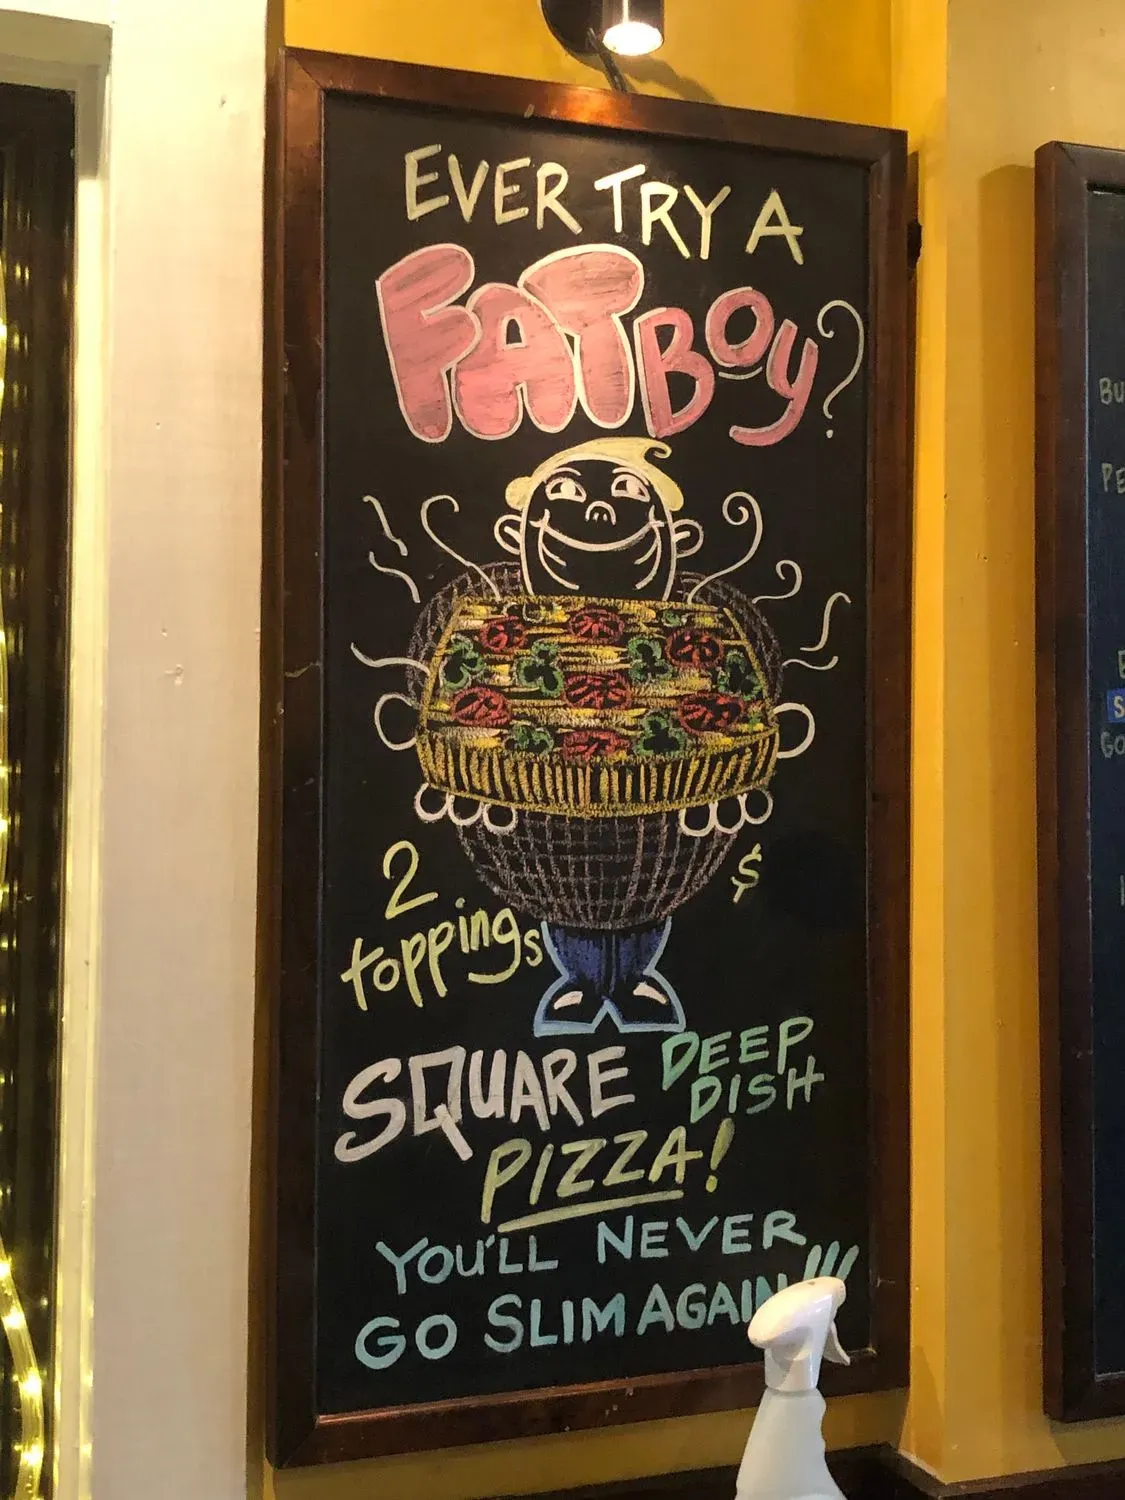 EVER TRY A
FATBOY?
2
toppings
$
SQUARE DEEP
DISH
PIZZA!
YOU'LL NEVER
GO SLIM AGAIN!!!
BU
PE
S
GO